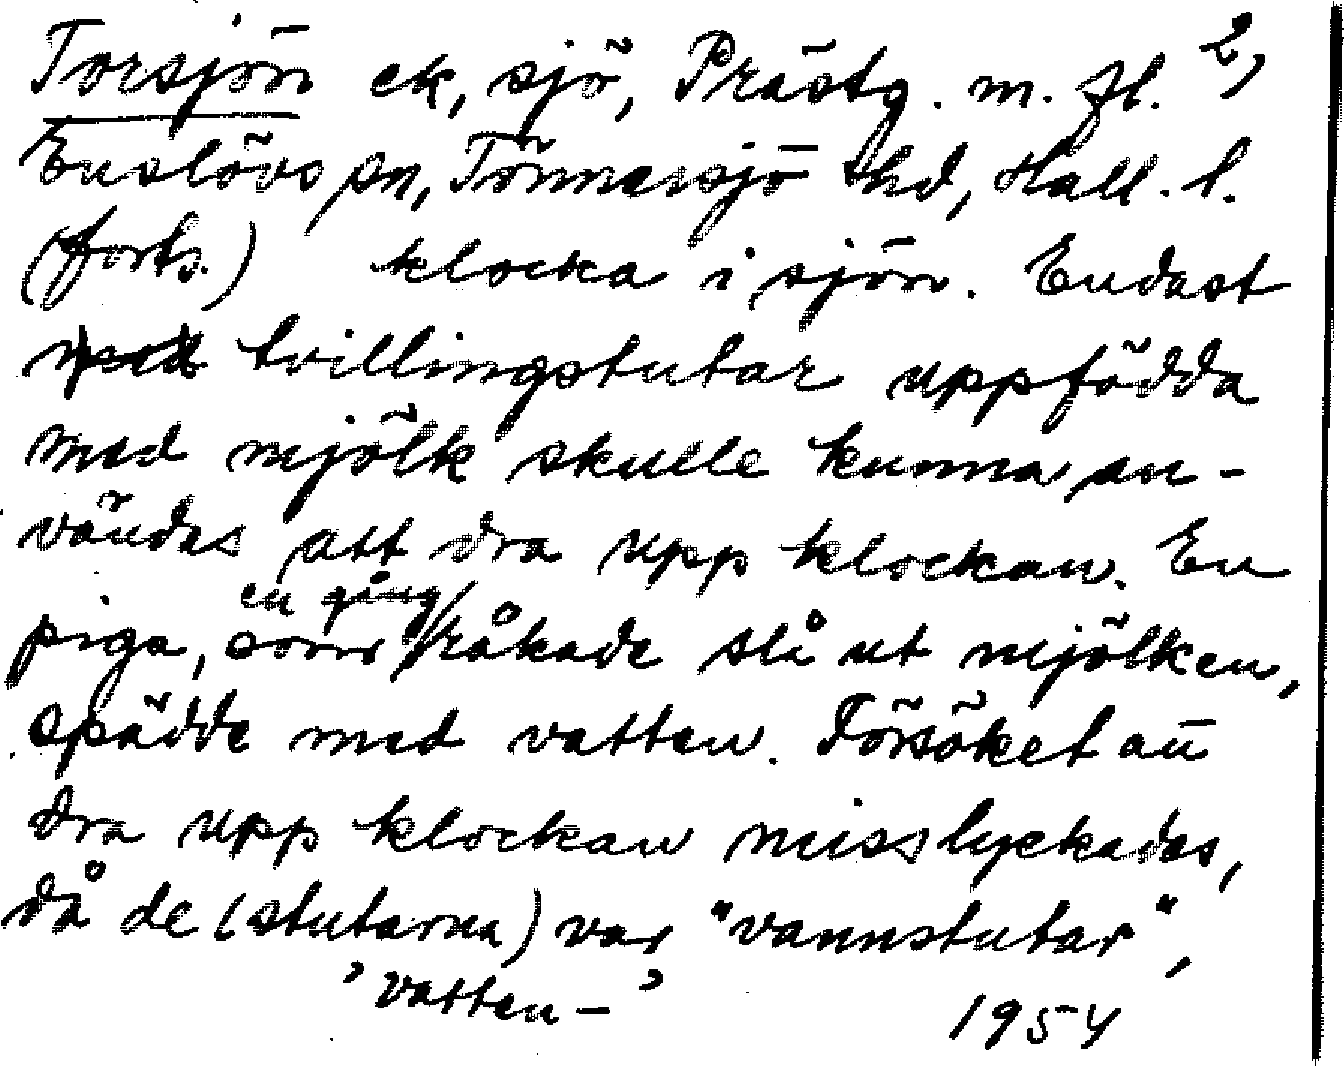 Torsjön ek, sjö, Prästg. m. fl. 2,
Enslövs sn, Tönnersjö hd, Hall. l.
(forts.) klocka i sjön. Endast
tvillingstutar uppfödda
med mjölk skulle kunna an-
vändas att dra upp klockan. En
en gång
piga, som råkade slå ut mjölken,
spädde med vatten. Försöket att
dra upp klockan misslyckades,
då de (stutarna) var "vannstutar",
'vatten-'
1954